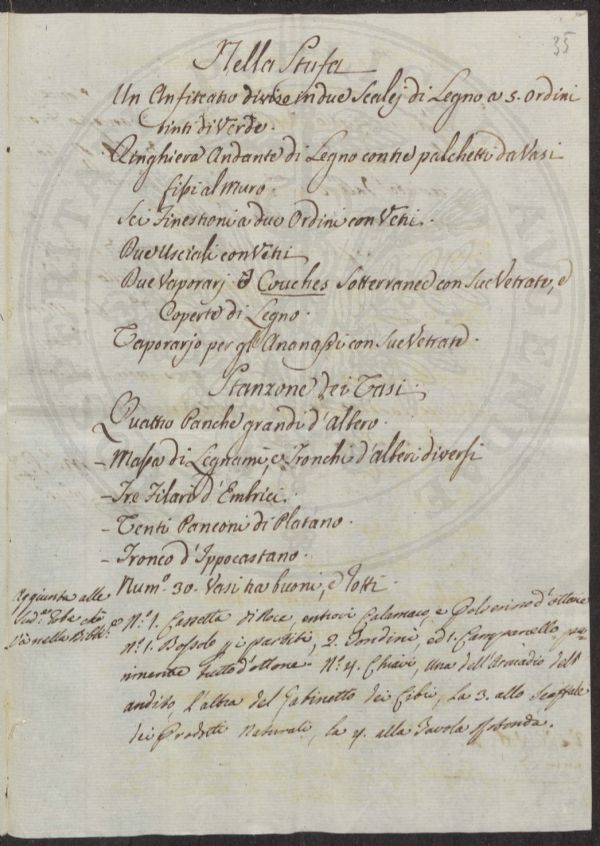 35
Nella Stufa
Un Anfiteatro diviso in due Scalej di Legno a 5. ordini
tinti di Verde.
Ringhiera Andante di Legno con tre palchetti da Vasi
fissi al Muro.
Sei Finestroni a due Ordini con Vetri.
Due Usciali con Vetri
Due Vaporarj o Couches Sotterranee con Sue Vetrate, e
Coperte di Legno.
Vaporarjo per gli Ananassi con Sue Vetrate.
Stanzone dei Vasi
Quattro Panche grandi d'albero.
- Massa di Legnami, e Tronchi d'alberi diversi
- Tre Filari d'Embrici.
- Venti Panconi di Platano.
- Tronco d'Ippocastano.
Num.º 30. Vasi tra buoni, e Rotti.
Aggiunta alle
che
è nella Bibl.
N.º 1. Cassetta di Noce, entrovi Calamajo, e Polverino d'ottone
n.º 1. Bossolo i partiti, 2. Tondini, ed 1. Campanello pa-
rimente tutto d'ottone. N.º 4. Chiavi, una dell'Armadio dell'
andito, l'altra del Gabinetto dei Cibi, la 3. allo Scaffale
dei Prodotti Naturali, la 4. alla Tavola Rotonda.